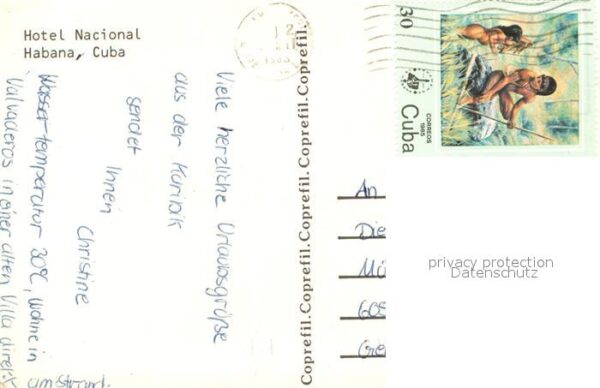 Hotel Nacional
Habana, Cuba
Viele herzliche Urlaubsgrüße
aus der Karibik
sendet
Ihnen
Christine
Wassertemperatur 30°C, wohne in
Valvaderos in einer alten Villa direkt
am Strand.
Coprefil.Coprefil.Coprefil.Coprefil.Coprefil.
30
CORREOS
1985
Cuba
An
Die
Mü
605
privacy protection
Datenschutz